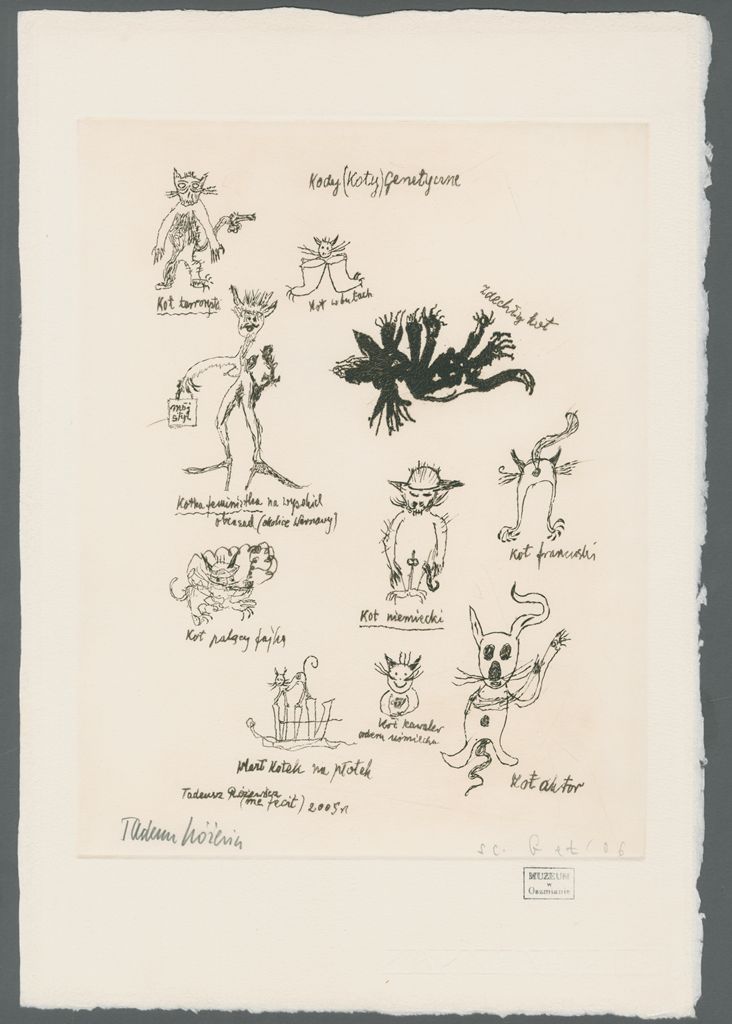 Kody (Koty) Genetyczne
Kot terrorysta
Kot w butach
Zdechły kot
mój
styl
Kotka feministka na wysokich
obcasach (okolice Warszawy)
Kot francuski
Kot niemiecki
Kot palący fajkę
Kot kawaler
orderu uśmiechu
Wlazł Kotek na płotek
Kot aktor
Tadeusz Różewicz
(me fecit) 2005 r
Tadeusz Różewicz
sc. '06
MUZEUM
w